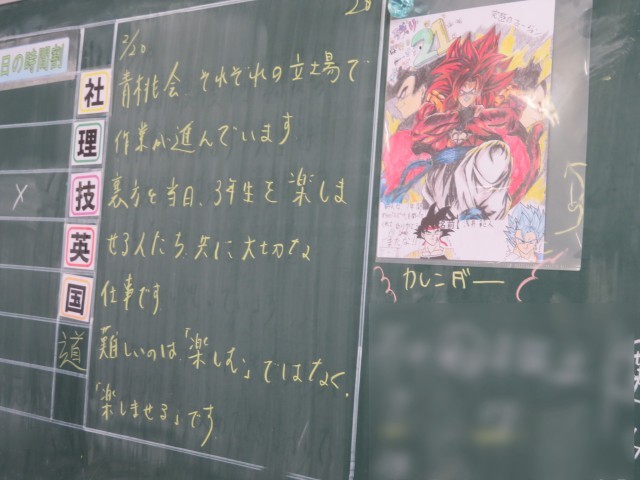 日の時間割
社
理
技
英
国
道
×
3/20
青桃会、それぞれの立場で
作業が進んでいます。
裏方と当日、3年生を楽しま
せる人たち、共に大切な
仕事です。
難しいのは「楽しむ」ではなく、
「楽しませる」です。
カレンダー